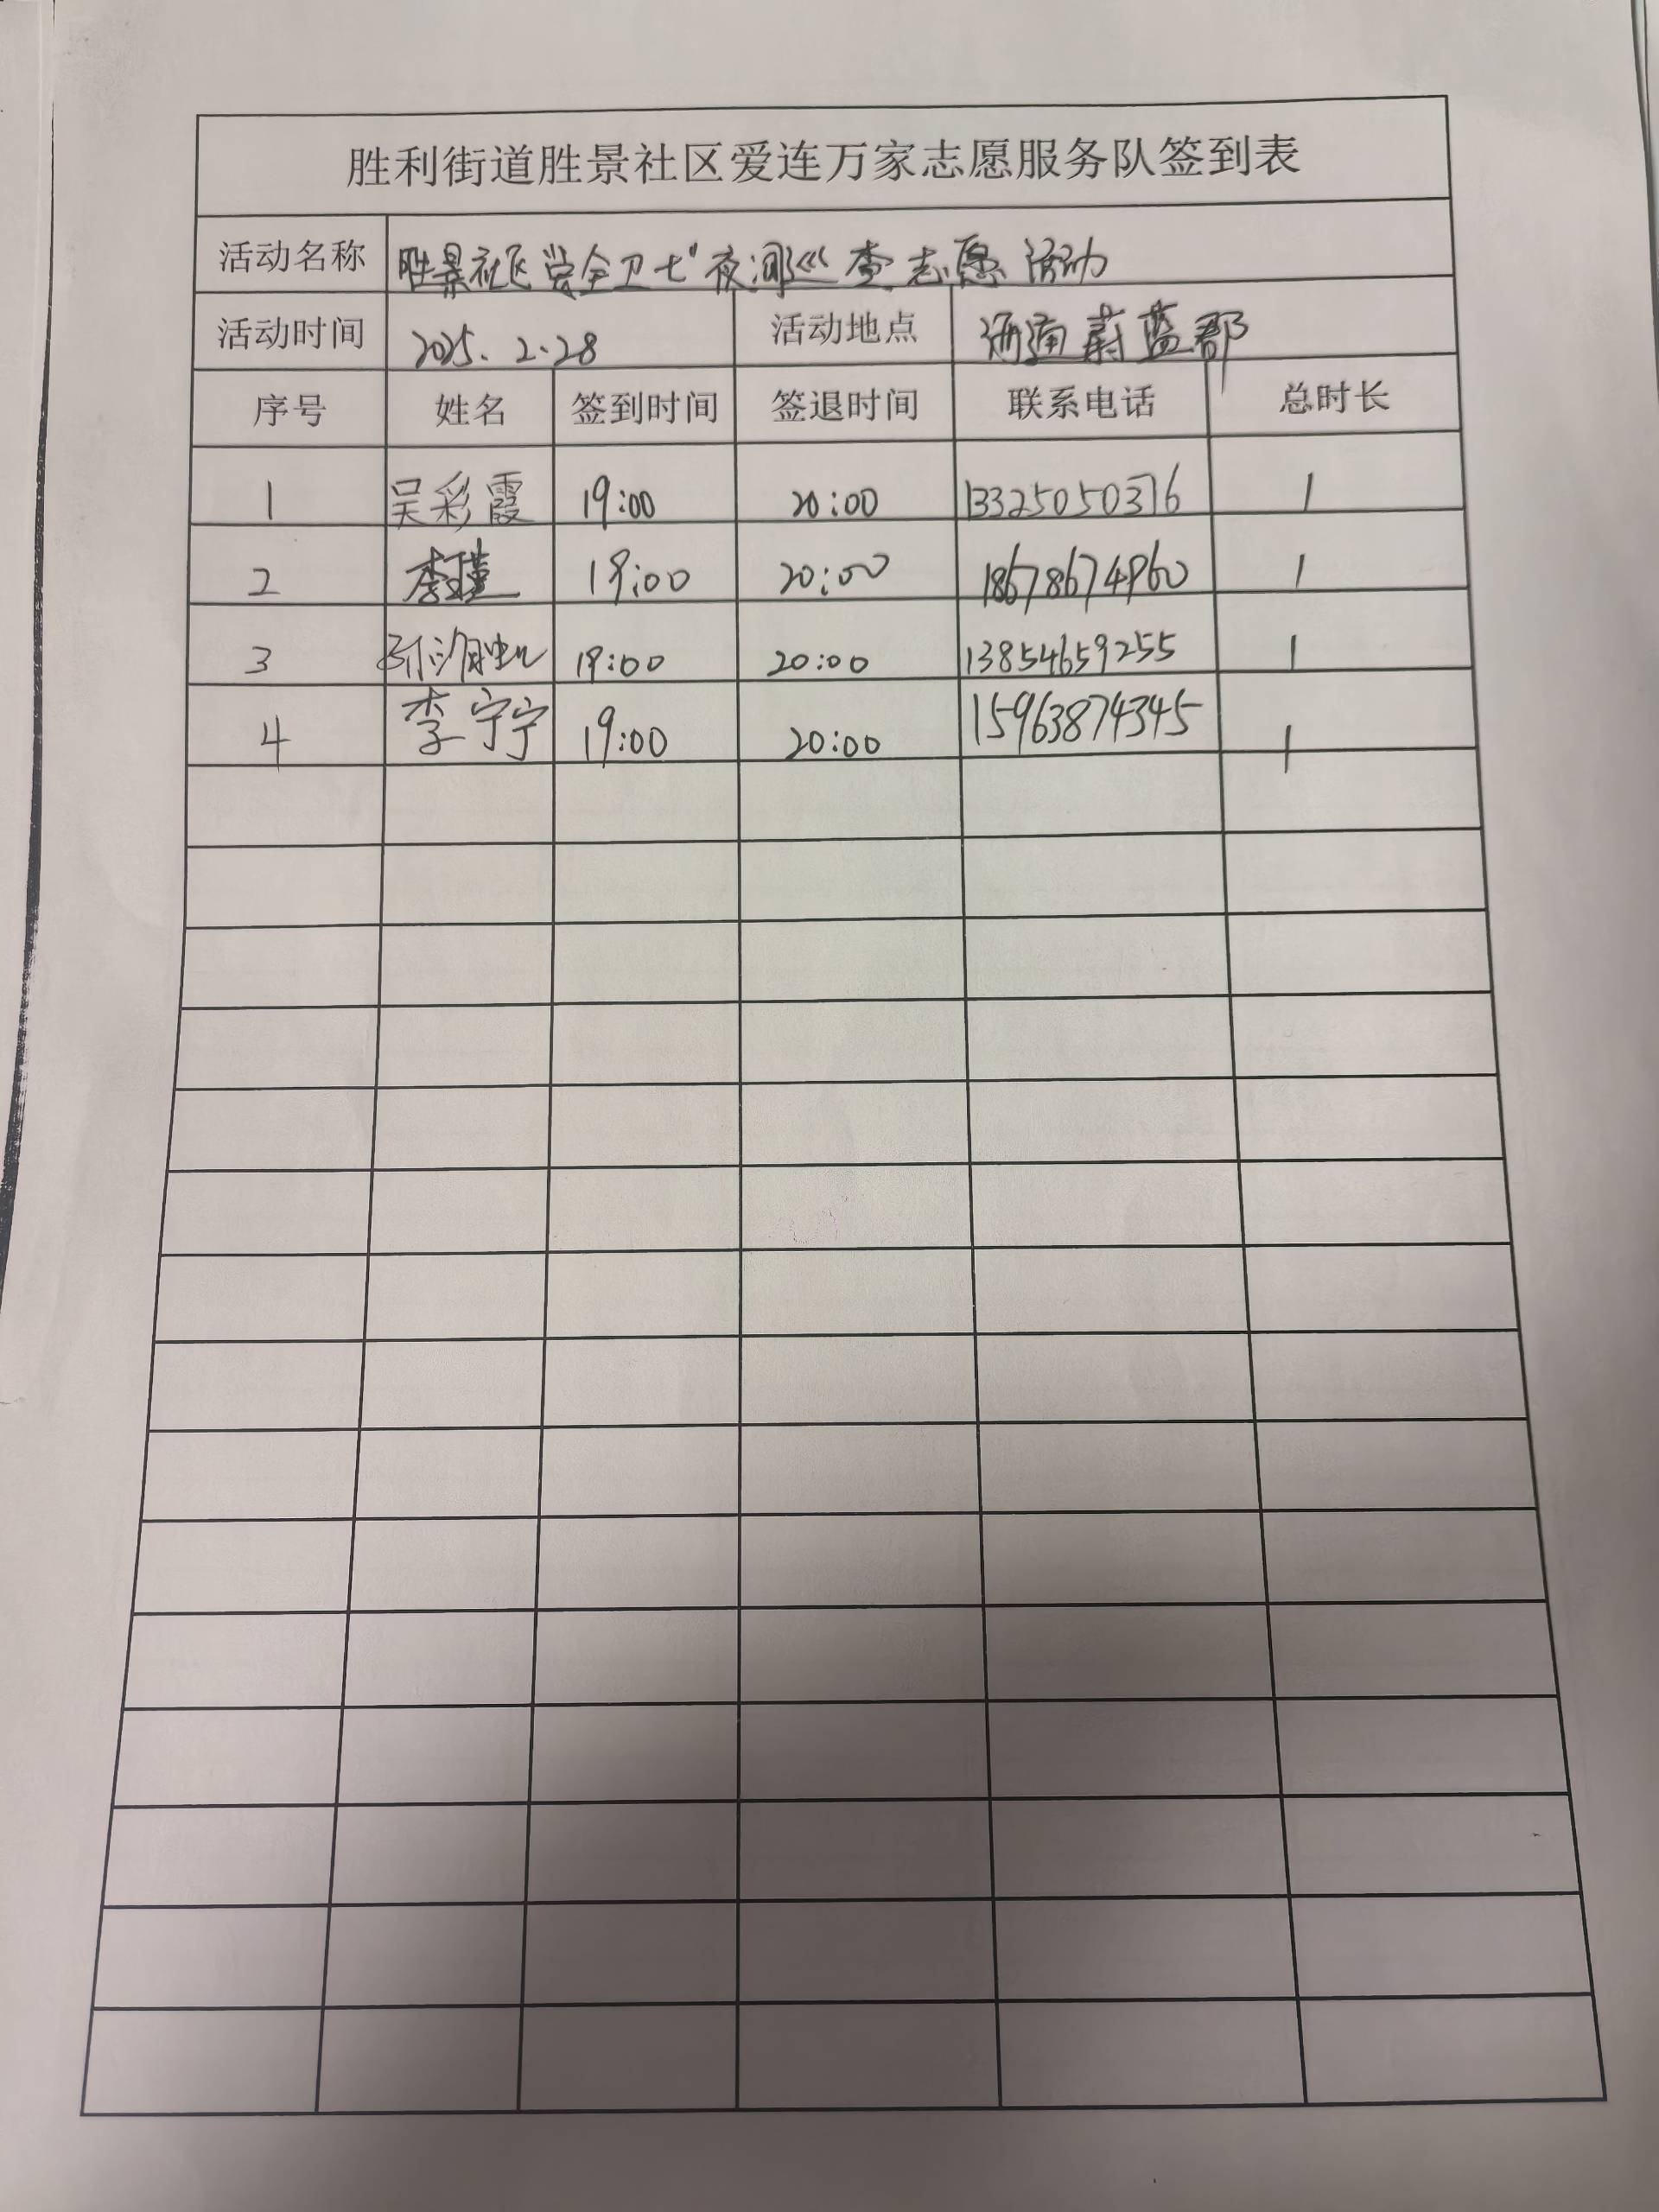 胜利街道胜景社区爱连万家志愿服务队签到表
活动名称 胜景社区 安全卫士"夜间巡查志愿活动
活动时间 2025.2.28 活动地点 海通蔚蓝郡
序号 姓名 签到时间 签退时间 联系电话 总时长
1 吴彩霞 19:00 20:00 13325050376 1
2 李瑾 19:00 20:00 18678674960 1
3 19:00 20:00 13854659255 1
4 李宁宁 19:00 20:00 15963874345 1